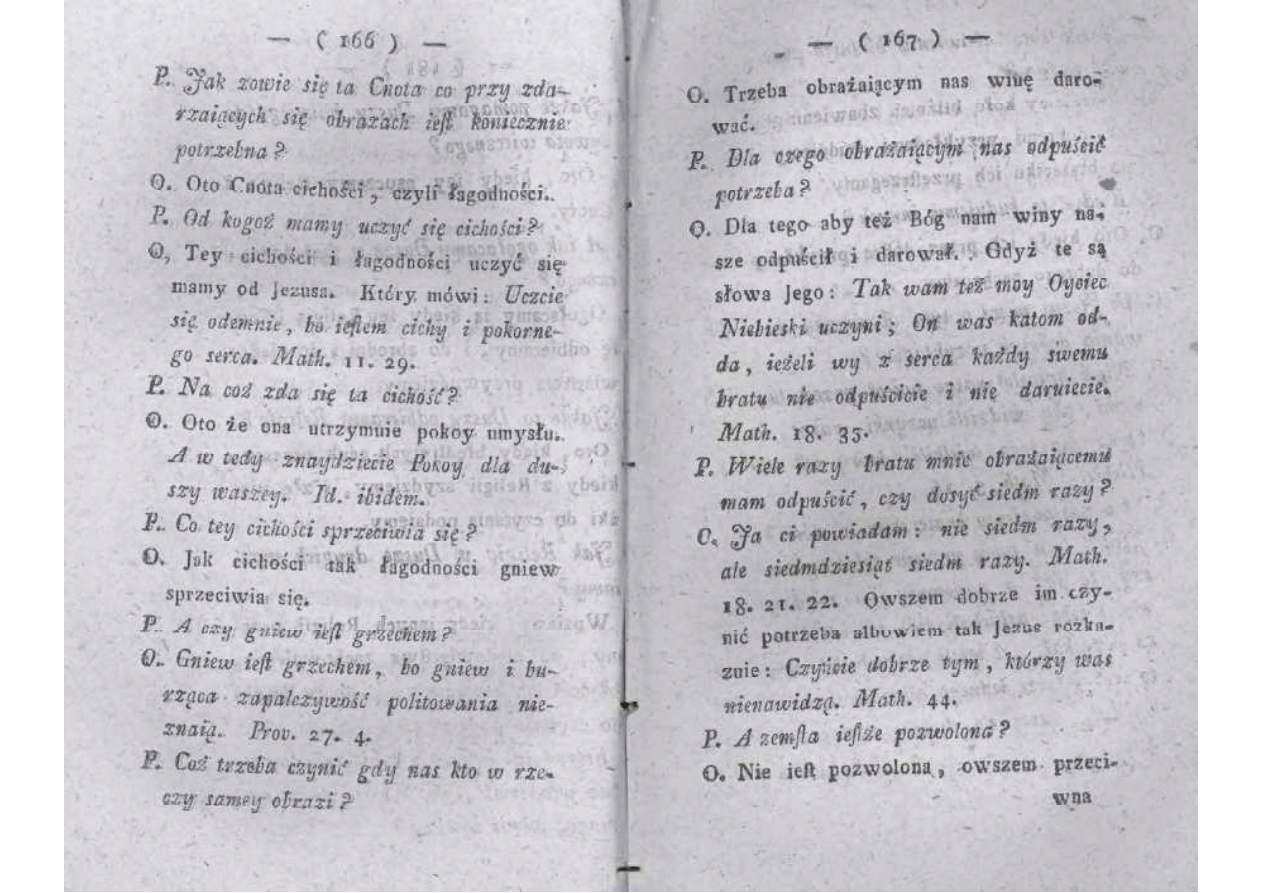 — ( 166 ) —
P. Jak zowie się ta Cnota co przy zda-
rzaiących się obrazach ieſt koniecznie
potrzebna ?
O. Oto Cnota cichości, czyli łagodności.
P. Od kogoż mamy uczyć się cichości ?
O, Tey cichości i łagodności uczyć się
mamy od Jezusa. Który mówi : Uczcie
się odemnie, bo ieſtem cichy i pokorne-
go serca. Math. 11. 29.
P. Na coż zda się ta cichość ?
O. Oto że ona utrzymuie pokoy umysłu.
A w tedy znaydziecie Pokoy dla du-
szy waszey. Id. ibidem.
P. Co tey cichości sprzeciwia się ?
O. Jak cichości tak łagodności gniew
sprzeciwia się.
P. A czy gniew ieſt grzechem ?
O. Gniew ieſt grzechem, bo gniew i bu-
rząca zapalczywość politowania nie-
znaią. Prov. 27. 4.
P. Coż trzeba czynić gdy nas kto w rze-
czy samey obrazi ?
— ( 167 ) —
O. Trzeba obrażaiącym nas winę daro-
wać.
P. Dla czego obrażaiącym nas odpuścić
potrzeba ?
O. Dla tego aby też Bóg nam winy na-
sze odpuścił i darował. Gdyż te są
słowa Jego : Tak wam też moy Oyciec
Niebieski uczyni ; On was katom od-
da, ieżeli wy z serca każdy swemu
bratu nie odpuścicie i nie daruiecie.
Math. 18. 35.
P. Wiele razy bratu mnie obrażaiącemu
mam odpuścić, czy dosyć siedm razy ?
O. Ja ci powiadam : nie siedm razy,
ale siedmdziesiąt siedm razy. Math.
18. 21. 22. Owszem dobrze im czy-
nić potrzeba albowiem tak Jezus rozka-
zuie : Czyńcie dobrze tym, którzy was
nienawidzą. Math. 44.
P. A zemſta ieſtże pozwolona ?
O. Nie ieſt pozwolona, owszem przeci-
wna